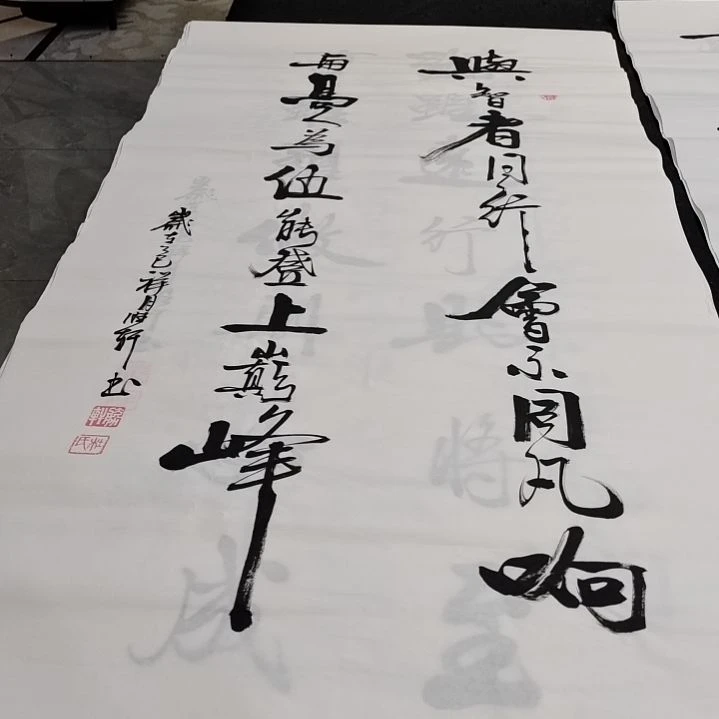 與智者同行會不同凡响
与高人為伍能登上巅峰
歲在乙巳祥月轩书